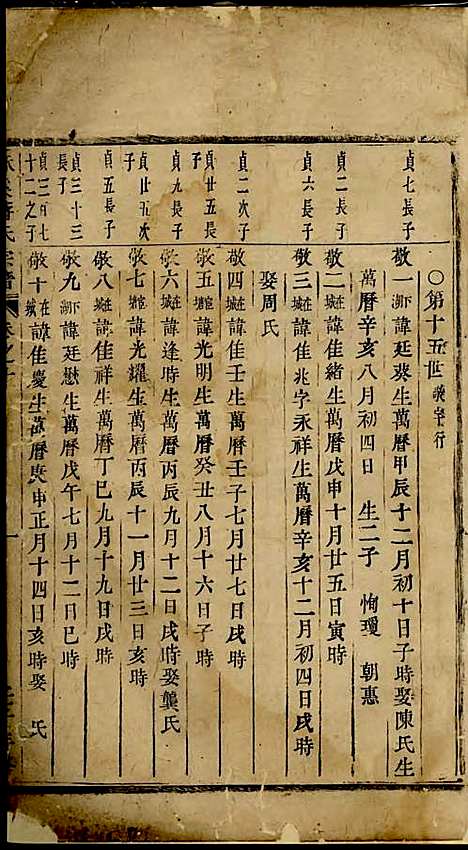 ○第十五世 敬字行
貞七長子
敬一 諱廷葵生萬曆甲辰十二月初十日子時娶陳氏生
萬曆辛亥八月初四日 生二子 恂瓊 朝惠
貞二長子
敬二在城諱佳緒生萬曆戊申十月廿五日寅時
貞六長子
敬三在城諱佳兆字永祥生萬曆辛亥十二月初四日戌時
娶周氏
貞二次子
敬四在城諱佳壬生萬曆壬子七月廿七日戌時
貞廿五長子
敬五 諱光明生萬曆癸丑八月十六日子時
貞九長子
敬六在城諱逢時生萬曆丙辰九月十二日戌時娶龔氏
貞廿五次子
敬七 諱光耀生萬曆丙辰十一月廿三日亥時
貞五長子
敬八在城諱佳祥生萬曆丁巳九月十九日戌時
貞三十三長子
敬九 諱廷懋生萬曆戊午七月十二日巳時
貞二四七十二之子
敬十在城諱佳慶生萬曆庚申正月十四日亥時娶 氏